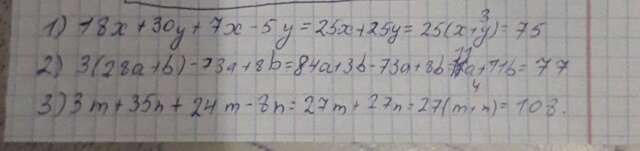 1) 18x + 30y + 7x - 5y = 25x + 25y = 25(x+y) = 75
2) 3(28a+b) - 73a + 8b = 84a + 3b - 73a + 8b = 11a + 11b = 77
3) 3m + 35n + 24m - 8n = 27m + 27n = 27(m+n) = 108.